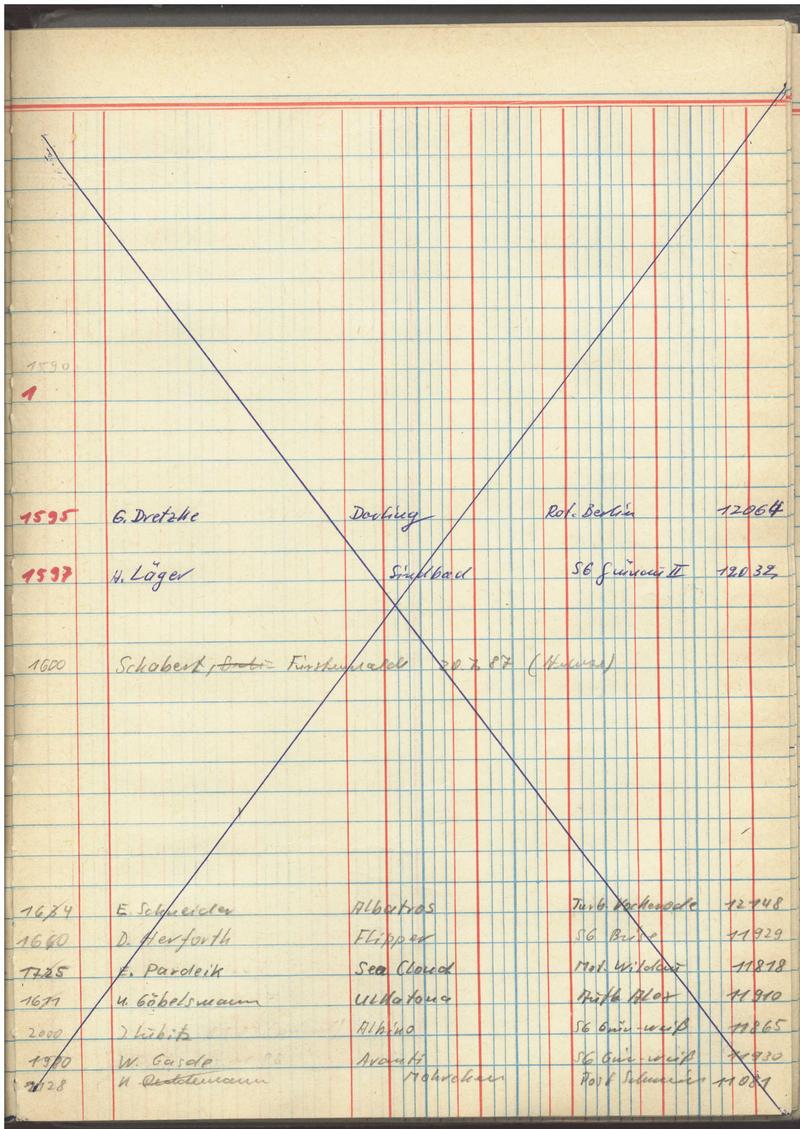 1590
1
1595 G. Dretzke Darling Rot. Berlin 12064
1597 H. Läger Sindbad SG Grünau II 12032
1600 Schabert, Fürstenwalde 20.7.87
1634 E. Schneider Albatros Turb. Vockerode 12148
1660 D. Herforth Flipper SG Brise 11929
1725 E. Pardeik Sea Cloud Mot. Wildau 11818
1671 H. Göbelsmann Ulkatona 11910
2000 J Lubitz Albino SG Grün-weiß 11865
1970 W. Gasde Avanti SG Grün-weiß 11930
2028 H Möhrchen Post 11081